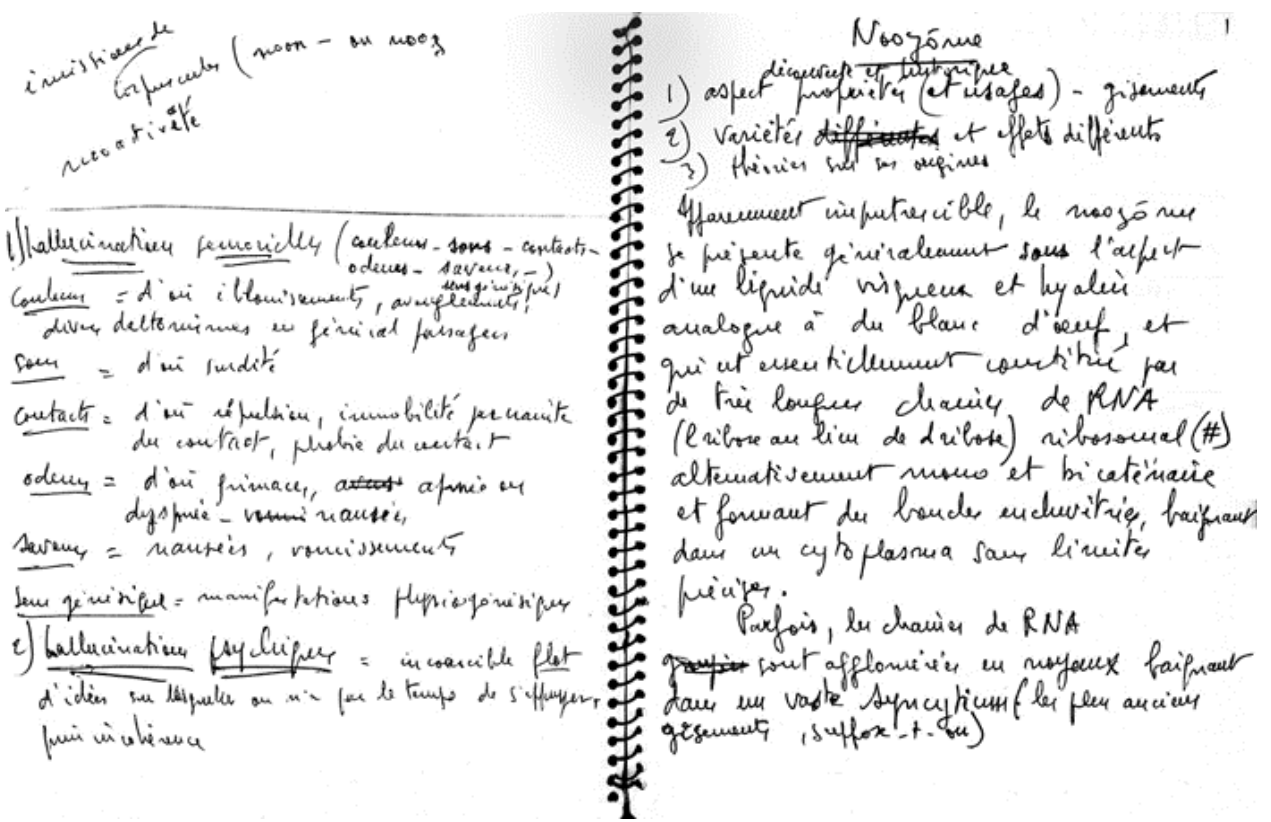 émissions de
corpuscules (noon - ou nooz
nooativité
1) hallucinations sensorielles (couleurs - sons - contacts -
odeurs - saveurs, -)
sens génésique)
Couleurs = d'où éblouissements, aveuglements,
divers daltonismes en général passagers
sons = d'où surdité
contacts = d'où répulsion, immobilité par crainte
du contact, phobie du contact
odeurs = d'où grimaces, apnée ou
dyspnée - nausées,
saveurs = nausées, vomissements
sens génésique = manifestations physiogénésiques
2) hallucinations psychiques = incoercible flot
d'idées sur lesquelles on n'a pas le temps de s'appuyer,
puis incohérence
1
Noozôme
découverte et historique
1) aspect propriétés (et usages) - gisements
2) variétés différentes et effets différents
3) théories sur ses origines
Apparemment imputrescible, le noozôme
se présente généralement sous l'aspect
d'un liquide visqueux et hyalin
analogue à du blanc d'oeuf, et
qui est essentiellement constitué par
de très longues chaînes de RNA
(l ribose au lieu de d ribose) ribosomal (#)
alternativement mono et bicaténaire
et formant des boucles enchevêtrées, baignant
dans un cytoplasma sans limites
précises.
Parfois, les chaînes de RNA
sont agglomérées en noyaux baignant
dans un vaste syncytium (les plus anciens
gisements, suppose-t-on)